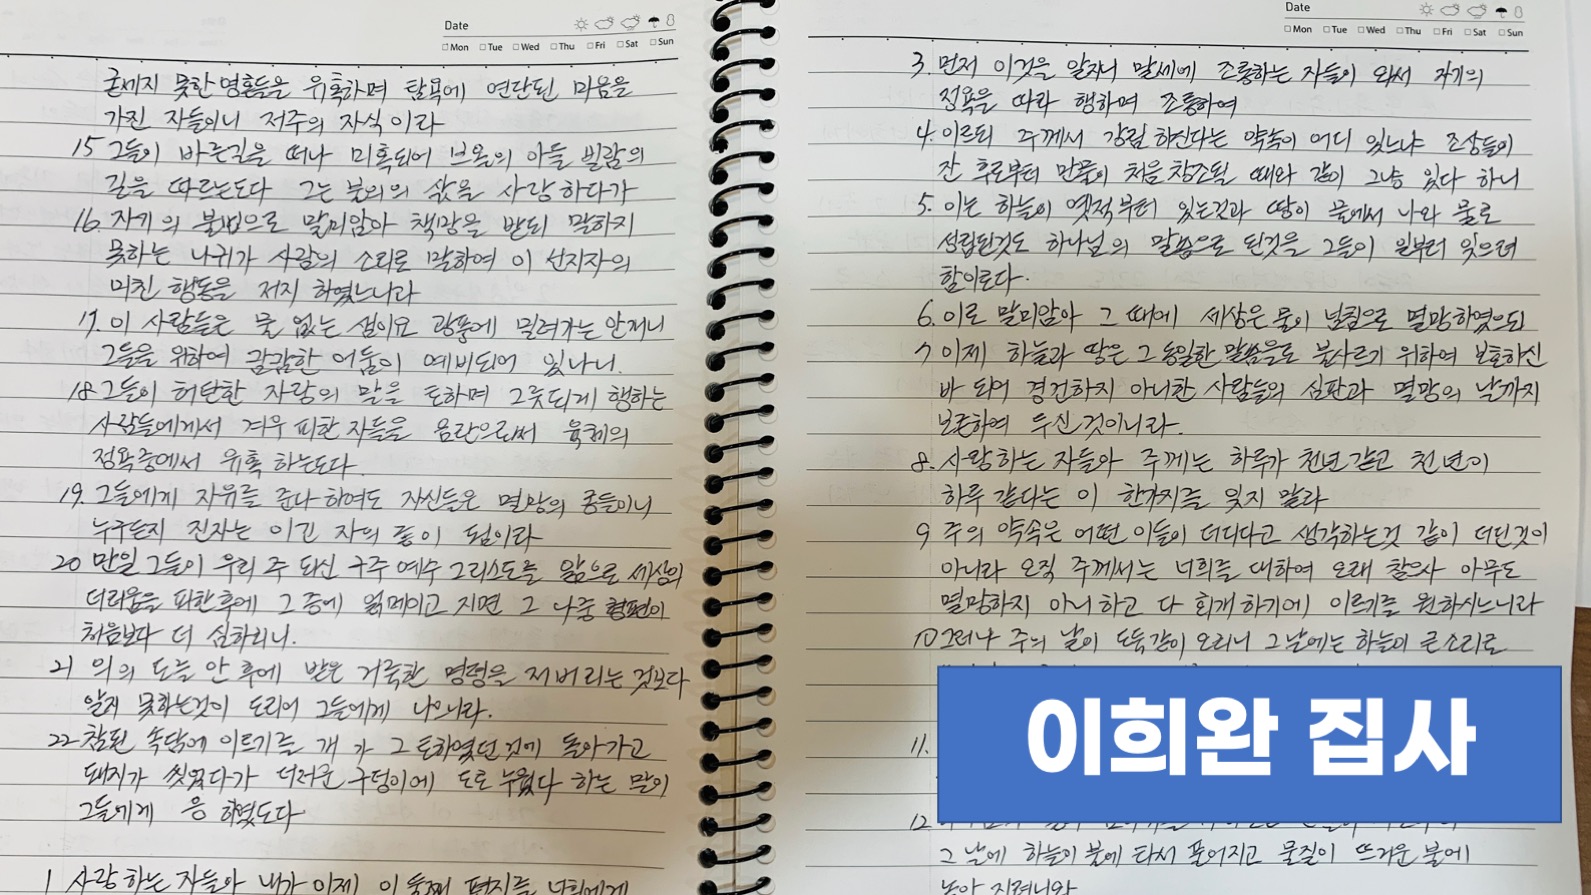 Date
Mon Tue Wed Thu Fri Sat Sun
굳세지 못한 영혼들을 유혹하며 탐욕에 연단된 마음을
가진 자들이니 저주의 자식이라
15 그들이 바른길을 떠나 미혹되어 브올의 아들 발람의
길을 따르는도다 그는 불의의 삯을 사랑하다가
16. 자기의 불법으로 말미암아 책망을 받되 말하지
못하는 나귀가 사람의 소리로 말하여 이 선지자의
미친 행동을 저지 하였느니라
17. 이 사람들은 물 없는 샘이요 광풍에 밀려가는 안개니
그들을 위하여 캄캄한 어둠이 예비되어 있나니.
18 그들이 허탄한 자랑의 말을 토하며 그릇되게 행하는
사람들에게서 겨우 피한 자들을 음란으로써 육체의
정욕중에서 유혹 하는도다.
19. 그들에게 자유를 준다 하여도 자신들은 멸망의 종들이니
누구든지 진자는 이긴 자의 종이 됨이라
20 만일 그들이 우리 주 되신 구주 예수 그리스도를 앎으로 세상의
더러움을 피한후에 그 중에 얽매이고 지면 그 나중 형편이
처음보다 더 심하리니.
21 의의 도를 안 후에 받은 거룩한 명령을 저버리는 것보다
알지 못하는것이 도리어 그들에게 나으니라.
22 참된 속담에 이르기를 개 가 그 토하였던 것에 돌아가고
돼지가 씻었다가 더러운 구덩이에 도로 누웠다 하는 말이
그들에게 응 하였도다
1 사랑 하는 자들아 내가 이제 이 둘째 편지를 너희에게
Date
Mon Tue Wed Thu Fri Sat Sun
3. 먼저 이것을 알지니 말세에 조롱하는 자들이 와서 자기의
정욕을 따라 행하며 조롱하여
4. 이르되 주께서 강림 하신다는 약속이 어디 있느냐 조상들이
잔 후로부터 만물이 처음 창조될 때와 같이 그냥 있다 하니
5. 이는 하늘이 옛적부터 있는것과 땅이 물에서 나와 물로
성립된것도 하나님의 말씀으로 된것을 그들이 일부러 잊으려
함이로다.
6. 이로 말미암아 그 때에 세상은 물이 넘침으로 멸망하였으되
7 이제 하늘과 땅은 그 동일한 말씀으로 불사르기 위하여 보호하신
바 되어 경건하지 아니한 사람들의 심판과 멸망의 날까지
보존하여 두신 것이니라.
8. 사랑하는 자들아 주께는 하루가 천년 같고 천 년이
하루 같다는 이 한가지를 잊지 말라
9 주의 약속은 어떤 이들이 더디다고 생각하는것 같이 더딘것이
아니라 오직 주께서는 너희를 대하여 오래 참으사 아무도
멸망하지 아니하고 다 회개하기에 이르기를 원하시느니라
10 그러나 주의 날이 도둑같이 오리니 그 날에는 하늘이 큰 소리로
11.
이희완 집사
12
그 날에 하늘이 불에 타서 풀어지고 물질이 뜨거운 불에
녹아 지려니와